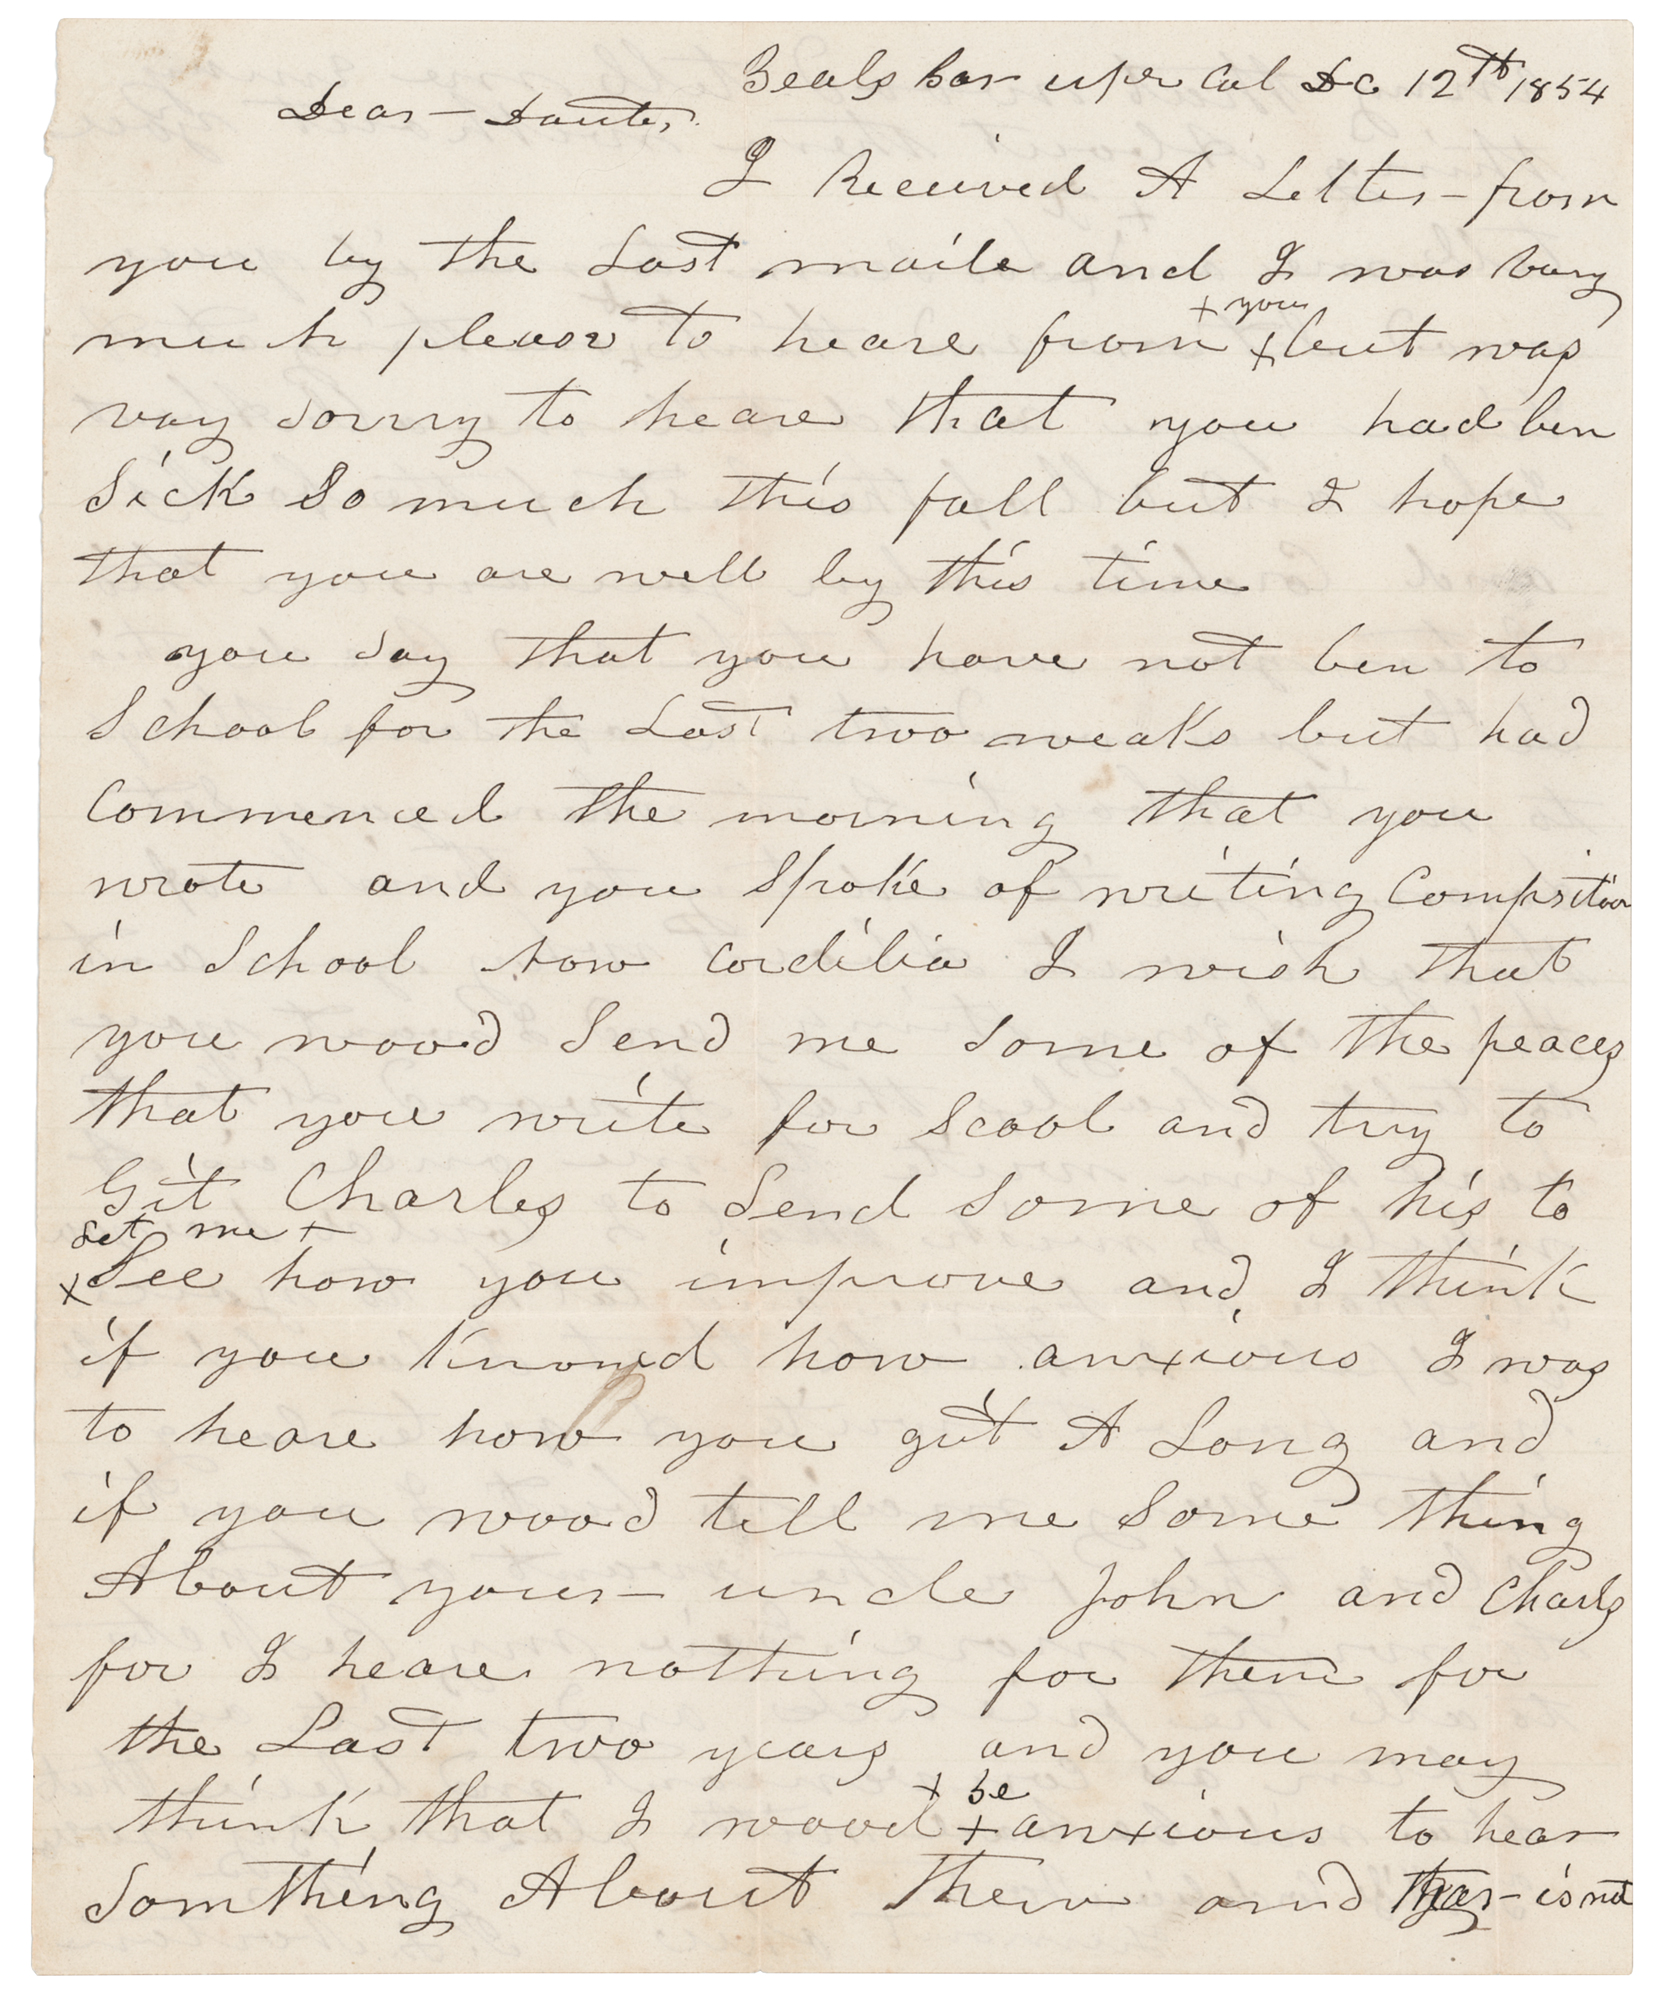 Beals bar uper Cal Dc 12th 1854
Dear - Dauter,
I Received A Letter - from
you by the Last maile and I was vary
+ you
much pleasr to heare from + but was
vary sorry to heare that you had ben
Sick So much this fall but I hope
that you are well by this time
you say that you have not ben to
School for the Last two weaks but had
Commenced the morning that you
wrote and you Spoke of writing Compsition
in School now Cordilia I wish that
you wood Send me some of the peaces
that you write for Scool and try to
Git Charles to Send some of his to
Let me +
+ See how you improve and I think
if you Knowed how anxious I was
to heare how you git A Long and
if you wood tell me Some thing
About your - uncle John and Charls
for I heare nothing for them for
the Last two years and you may
+ be
think that I wood + anxious to hear
Somthing About them and thar - is not